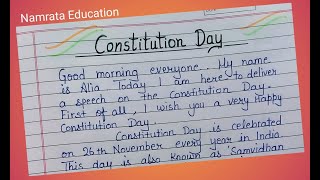 Namrata Education
Constitution Day
Good morning everyone. My name
is Alia Today I am here to deliver
a speech on the Constitution Day.
First of all, I wish you a very happy
Constitution Day.
Constitution Day is celebrated
on 26th November every year in India.
This day is also known as 'Samvidhan